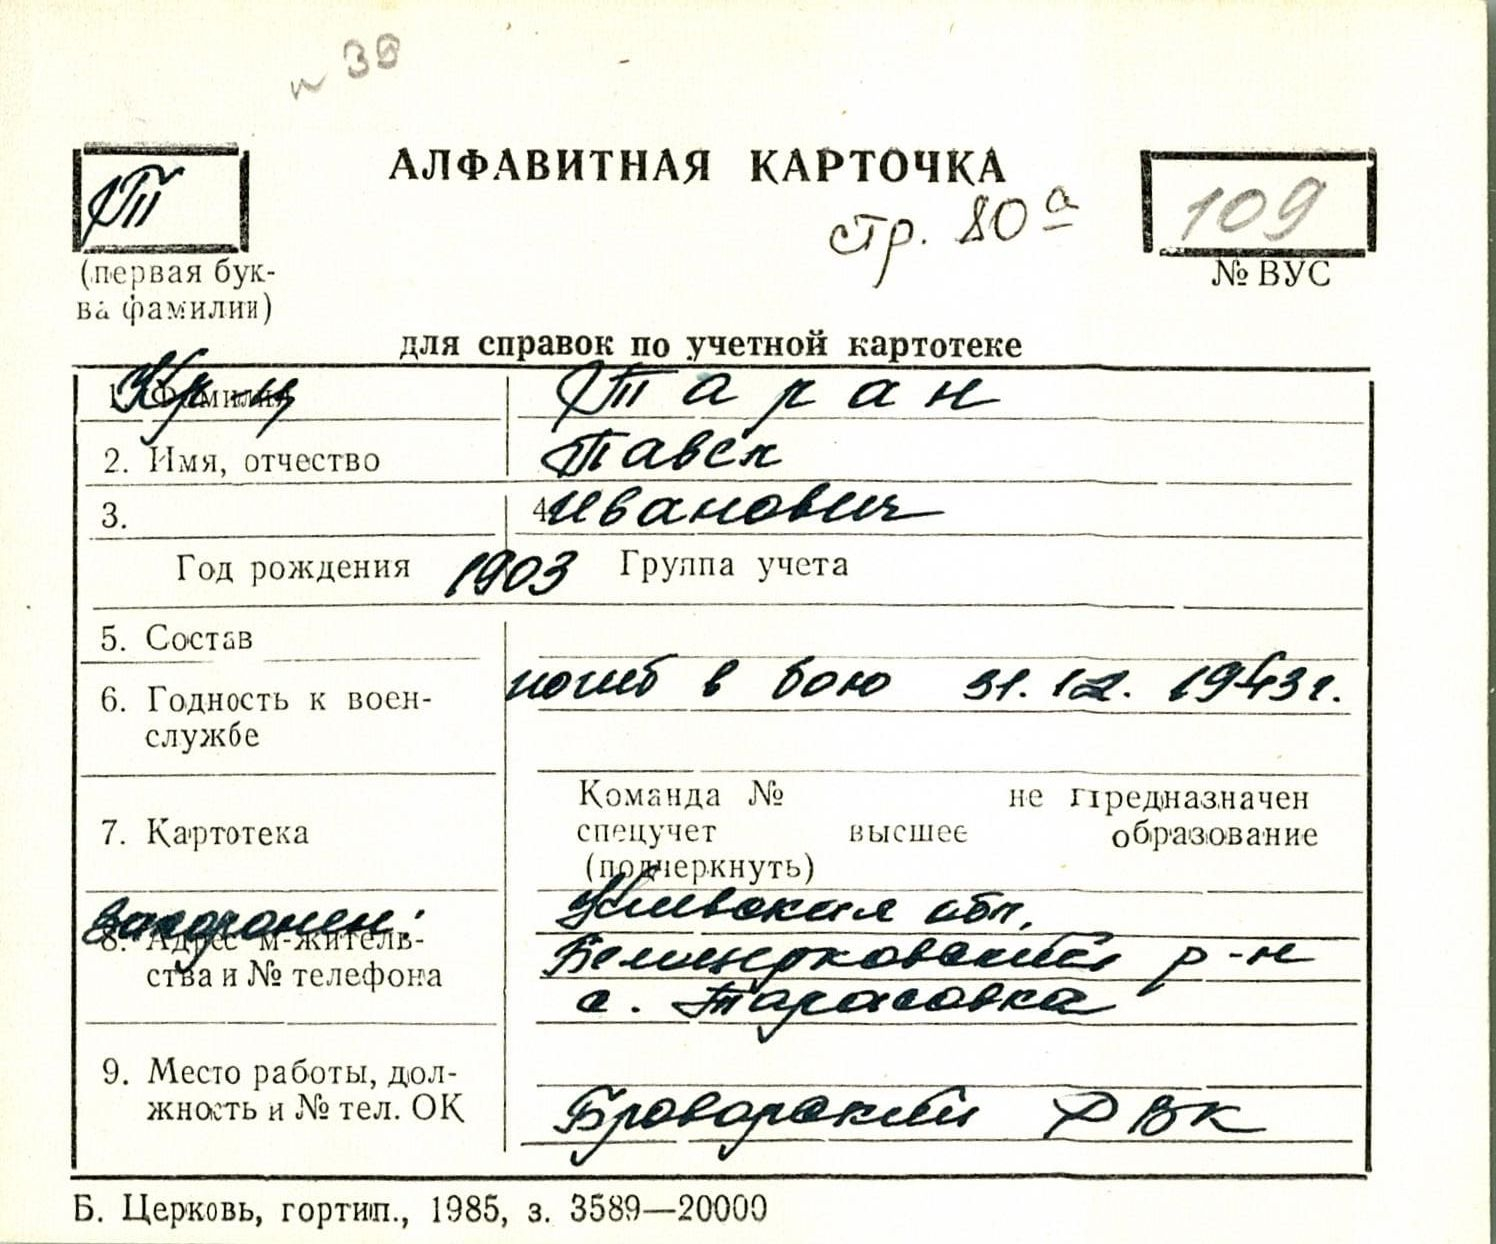 п 38
АЛФАВИТНАЯ КАРТОЧКА
Т
стр. 80а
109
(первая бук-
ва фамилии)
№ ВУС
для справок по учетной картотеке
1. Фамилия Кр-ц Таран
2. Имя, отчество Павел
3. 4. Иванович
Год рождения 1903 Группа учета
5. Состав
6. Годность к воен-
службе
погиб в бою 31.12.1943г.
7. Картотека
Команда № не предназначен
спецучет высшее образование
(подчеркнуть)
захоронен:
8. Адрес м-житель-
ства и № телефона
Киевская обл.
Белоцерковский р-н
с. Тарасовка
9. Место работы, дол-
жность и № тел. ОК
Броварский РВК
Б. Церковь, гортип., 1985, з. 3589—20000